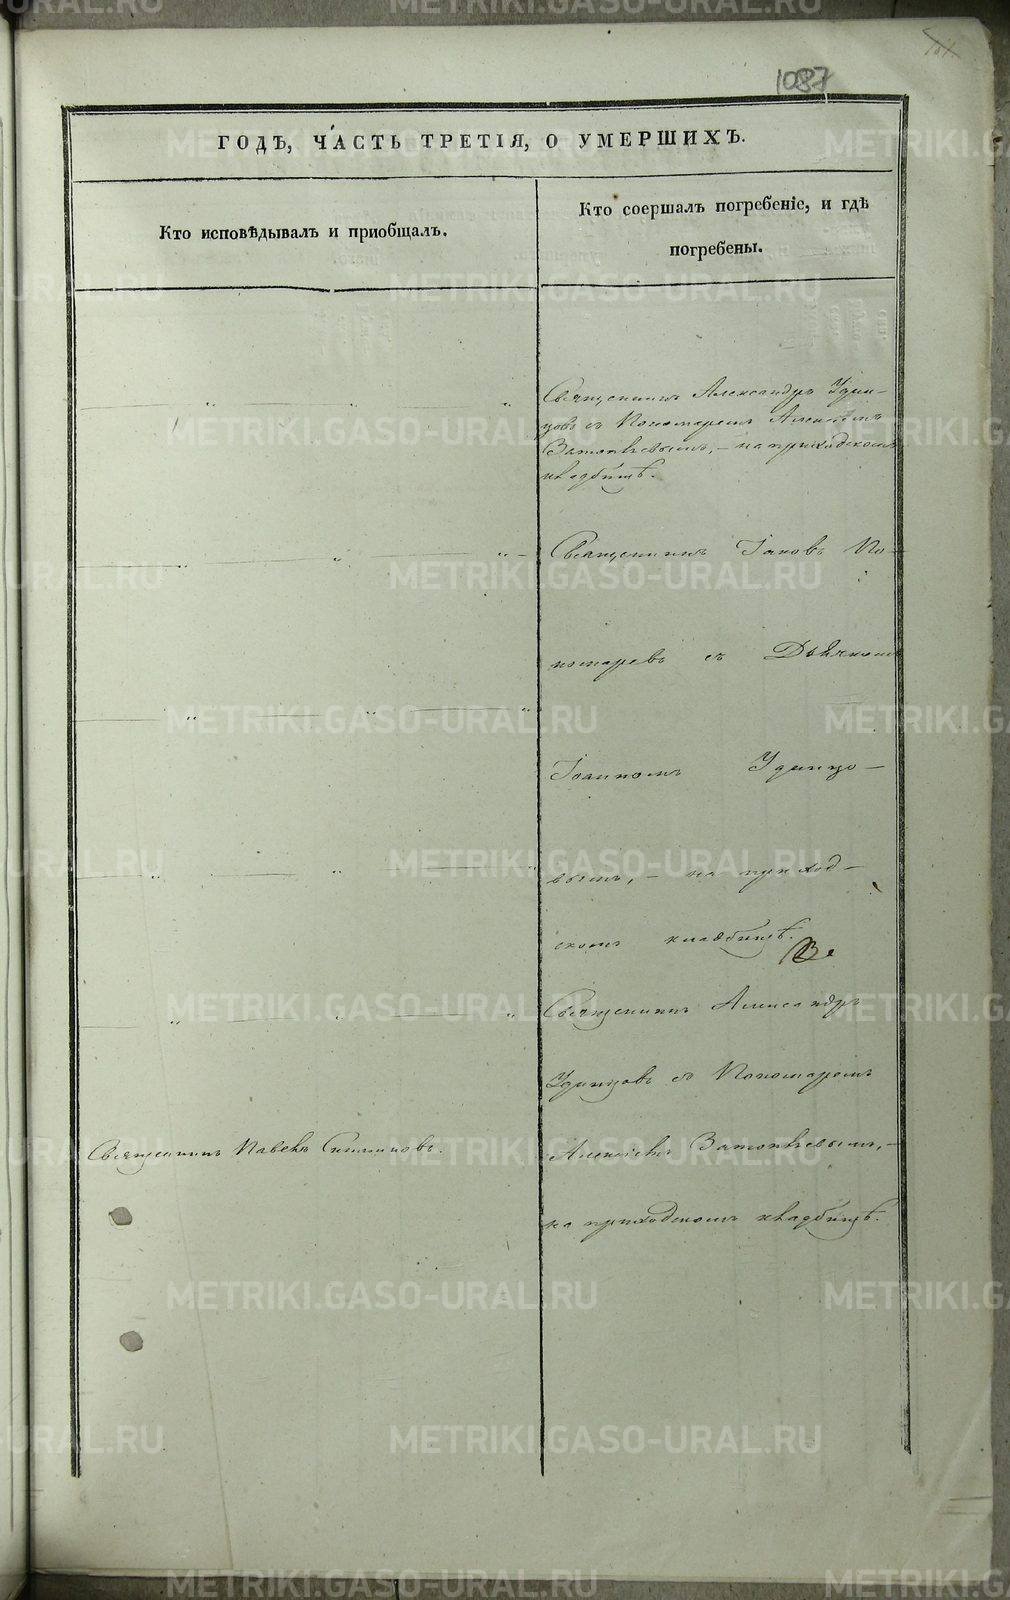 1087
ГОДЪ, ЧАСТЬ ТРЕТІЯ, О УМЕРШИХЪ.
Кто исповѣдывалъ и приобщалъ.
Кто соершалъ погребеніе, и гдѣ
погребены.
Священникъ Александръ Удин-
цовъ съ Пономаремъ
на приходскомъ
кладбищѣ.
Священникъ Іаковъ По-
номаревъ съ Дьячкомъ
Іоанномъ Удинцо-
вымъ, - на приход-
скомъ кладбищѣ.
Священникъ Александръ
Удинцовъ съ Пономаремъ
Священникъ Павелъ
на приходскомъ кладбищѣ.
METRIKI.GASO-URAL.RU